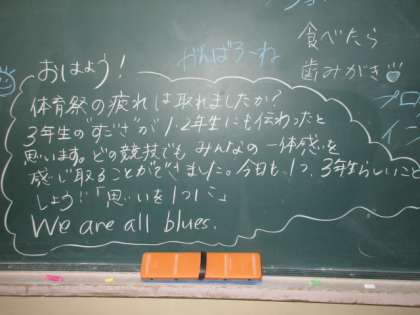 おはよう!
がんばろーね
食べたら
歯みがき
体育祭の疲れは取れましたか?
3年生の"すごさ"が1・2年生にも伝わったと
思います。どの競技でもみんなの一体感を
感じ取ることができました。今日も1つ、3年生らしいこと
しよう!「思いを1つに」
We are all blues.
プロ
イ